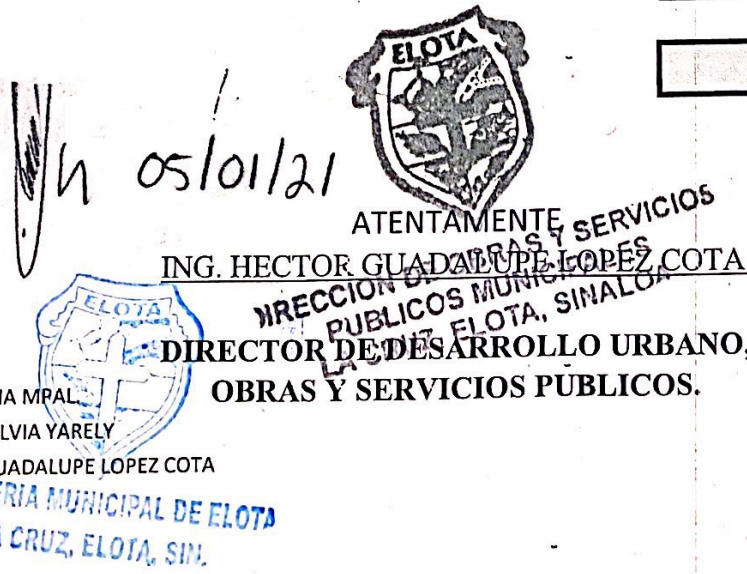 ELOTA
05/01/21
ATENTAMENTE
ING. HECTOR GUADALUPE LOPEZ COTA
DIRECCION DE OBRAS Y SERVICIOS
PUBLICOS MUNICIPALES
LA CRUZ, ELOTA, SINALOA
DIRECTOR DE DESARROLLO URBANO,
OBRAS Y SERVICIOS PUBLICOS.
ELOTA
IA MPAL.
LVIA YARELY
UADALUPE LOPEZ COTA
ERIA MUNICIPAL DE ELOTA
A CRUZ, ELOTA, SIN.